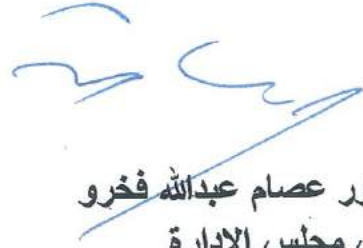 ور عصام عبدالله فخرو
مجلس الادارة